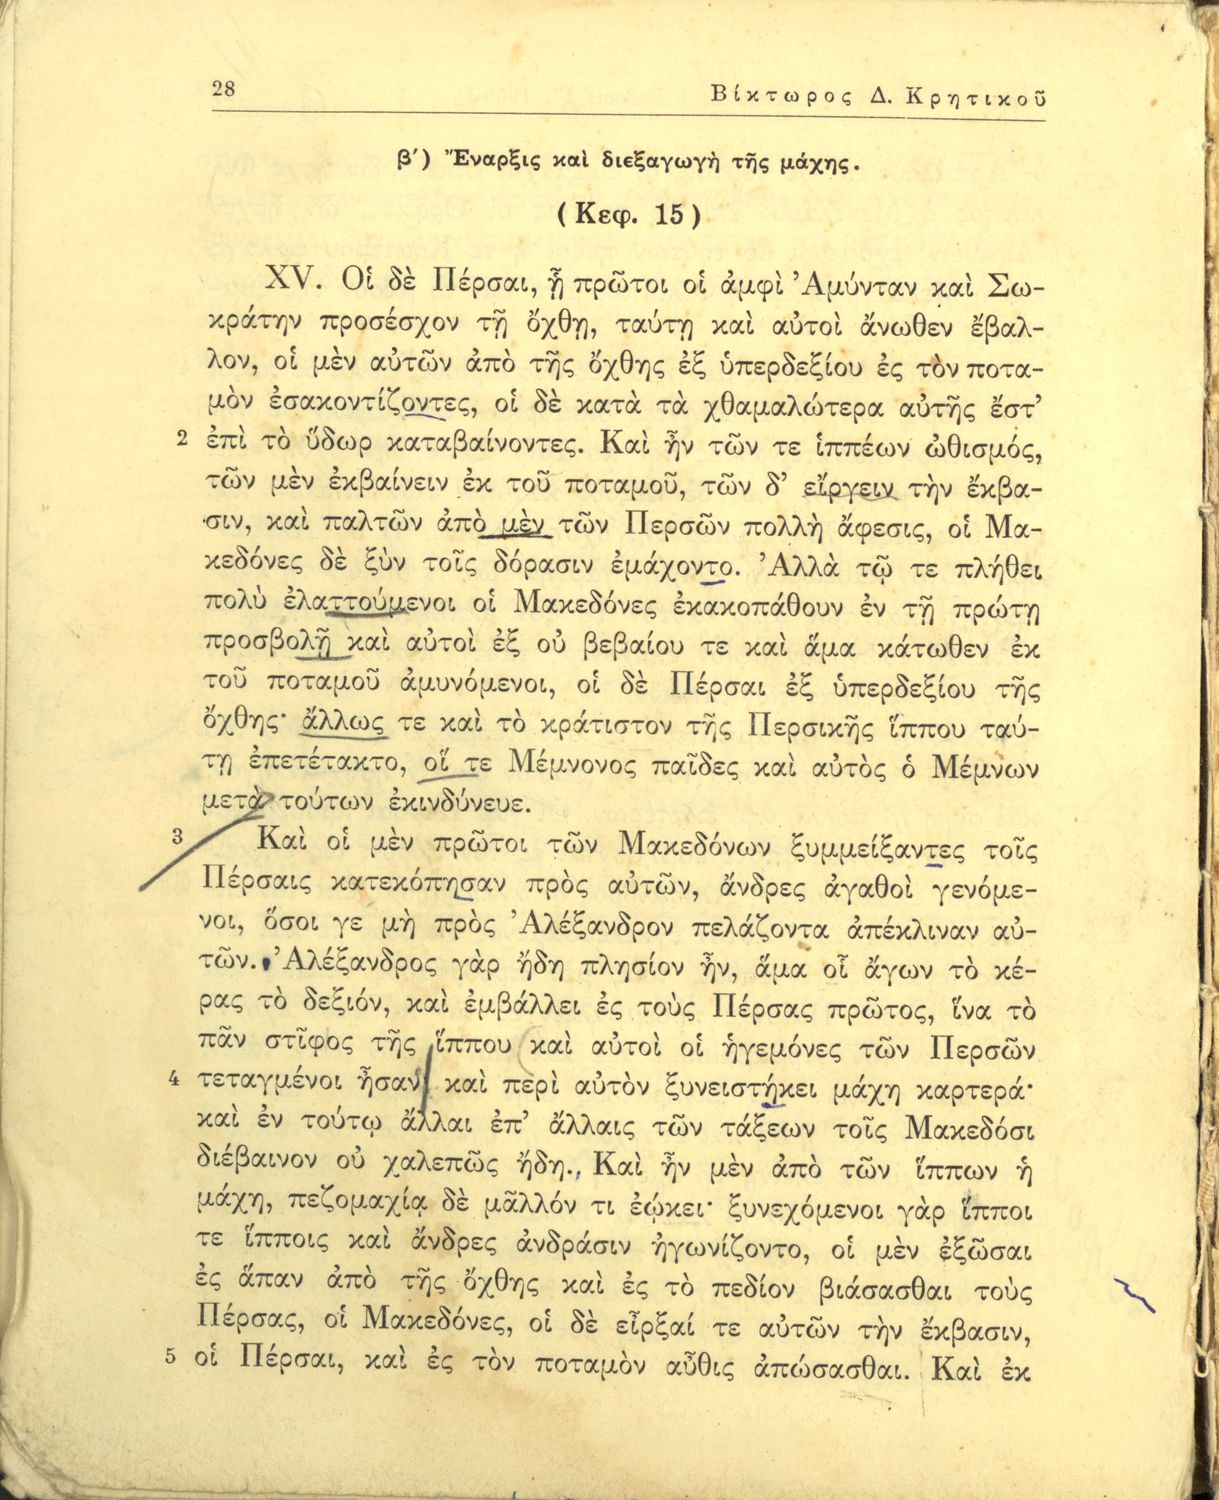 28
Βίκτωρος Δ. Κρητικοῦ
β΄) Ἔναρξις καὶ διεξαγωγὴ τῆς μάχης.
(Κεφ. 15)
XV. Οἱ δὲ Πέρσαι, ᾗ πρῶτοι οἱ ἀμφὶ Ἀμύνταν καὶ Σω-
κράτην προσέσχον τῇ ὄχθῃ, ταύτῃ καὶ αὐτοὶ ἄνωθεν ἔβαλ-
λον, οἱ μὲν αὐτῶν ἀπὸ τῆς ὄχθης ἐξ ὑπερδεξίου ἐς τὸν ποτα-
μὸν ἐσακοντίζοντες, οἱ δὲ κατὰ τὰ χθαμαλώτερα αὐτῆς ἔστ’
2 ἐπὶ τὸ ὕδωρ καταβαίνοντες. Καὶ ἦν τῶν τε ἱππέων ὠθισμός,
τῶν μὲν ἐκβαίνειν ἐκ τοῦ ποταμοῦ, τῶν δ’ εἴργειν τὴν ἔκβα-
σιν, καὶ παλτῶν ἀπὸ μὲν τῶν Περσῶν πολλὴ ἄφεσις, οἱ Μα-
κεδόνες δὲ ξὺν τοῖς δόρασιν ἐμάχοντο. Ἀλλὰ τῷ τε πλήθει
πολὺ ἐλαττούμενοι οἱ Μακεδόνες ἐκακοπάθουν ἐν τῇ πρώτῃ
προσβολῇ καὶ αὐτοὶ ἐξ οὐ βεβαίου τε καὶ ἅμα κάτωθεν ἐκ
τοῦ ποταμοῦ ἀμυνόμενοι, οἱ δὲ Πέρσαι ἐξ ὑπερδεξίου τῆς
ὄχθης· ἄλλως τε καὶ τὸ κράτιστον τῆς Περσικῆς ἵππου ταύ-
τῃ ἐπετέτακτο, οἵ τε Μέμνονος παῖδες καὶ αὐτὸς ὁ Μέμνων
μετὰ τούτων ἐκινδύνευε.
3 Καὶ οἱ μὲν πρῶτοι τῶν Μακεδόνων ξυμμείξαντες τοῖς
Πέρσαις κατεκόπησαν πρὸς αὐτῶν, ἄνδρες ἀγαθοὶ γενόμε-
νοι, ὅσοι γε μὴ πρὸς Ἀλέξανδρον πελάζοντα ἀπέκλιναν αὐ-
τῶν. Ἀλέξανδρος γὰρ ἤδη πλησίον ἦν, ἅμα οἷ ἄγων τὸ κέ-
ρας τὸ δεξιόν, καὶ ἐμβάλλει ἐς τοὺς Πέρσας πρῶτος, ἵνα τὸ
πᾶν στῖφος τῆς ἵππου καὶ αὐτοὶ οἱ ἡγεμόνες τῶν Περσῶν
4 τεταγμένοι ἦσαν καὶ περὶ αὐτὸν ξυνειστήκει μάχη καρτερά·
καὶ ἐν τούτῳ ἄλλαι ἐπ’ ἄλλαις τῶν τάξεων τοῖς Μακεδόσι
διέβαινον οὐ χαλεπῶς ἤδη. Καὶ ἦν μὲν ἀπὸ τῶν ἵππων ἡ
μάχη, πεζομαχίᾳ δὲ μᾶλλόν τι ἐῴκει· ξυνεχόμενοι γὰρ ἵπποι
τε ἵπποις καὶ ἄνδρες ἀνδράσιν ἠγωνίζοντο, οἱ μὲν ἐξῶσαι
ἐς ἅπαν ἀπὸ τῆς ὄχθης καὶ ἐς τὸ πεδίον βιάσασθαι τοὺς
Πέρσας, οἱ Μακεδόνες, οἱ δὲ εἶρξαί τε αὐτῶν τὴν ἔκβασιν,
5 οἱ Πέρσαι, καὶ ἐς τὸν ποταμὸν αὖθις ἀπώσασθαι. Καὶ ἐκ